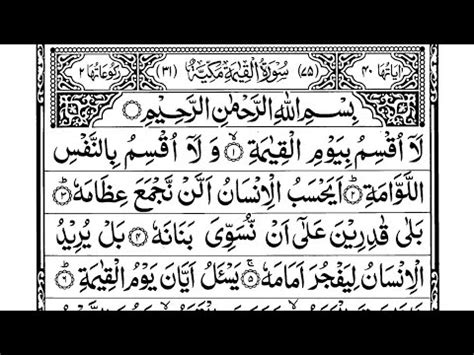 اٰیَاتُهَا ۴۰ (۷۵) سُوْرَةُ الْقِيٰمَةِ مَكِّيَّةٌ (۳۱) رُكُوْعَاتُهَا ۲
بِسْمِ اللهِ الرَّحْمٰنِ الرَّحِيْمِ
لَاۤ اُقْسِمُ بِيَوْمِ الْقِيٰمَةِ ۙ۱ وَ لَاۤ اُقْسِمُ بِالنَّفْسِ
اللَّوَّامَةِ ؕ۲ اَيَحْسَبُ الْاِنْسَانُ اَلَّنْ نَّجْمَعَ عِظَامَهٗ ؕ۳
بَلٰى قٰدِرِيْنَ عَلٰۤى اَنْ نُّسَوِّىَ بَنَانَهٗ ۴ بَلْ يُرِيْدُ
الْاِنْسَانُ لِيَفْجُرَ اَمَامَهٗ ۚ۵ يَسْـَٔلُ اَيَّانَ يَوْمُ الْقِيٰمَةِ ؕ۶